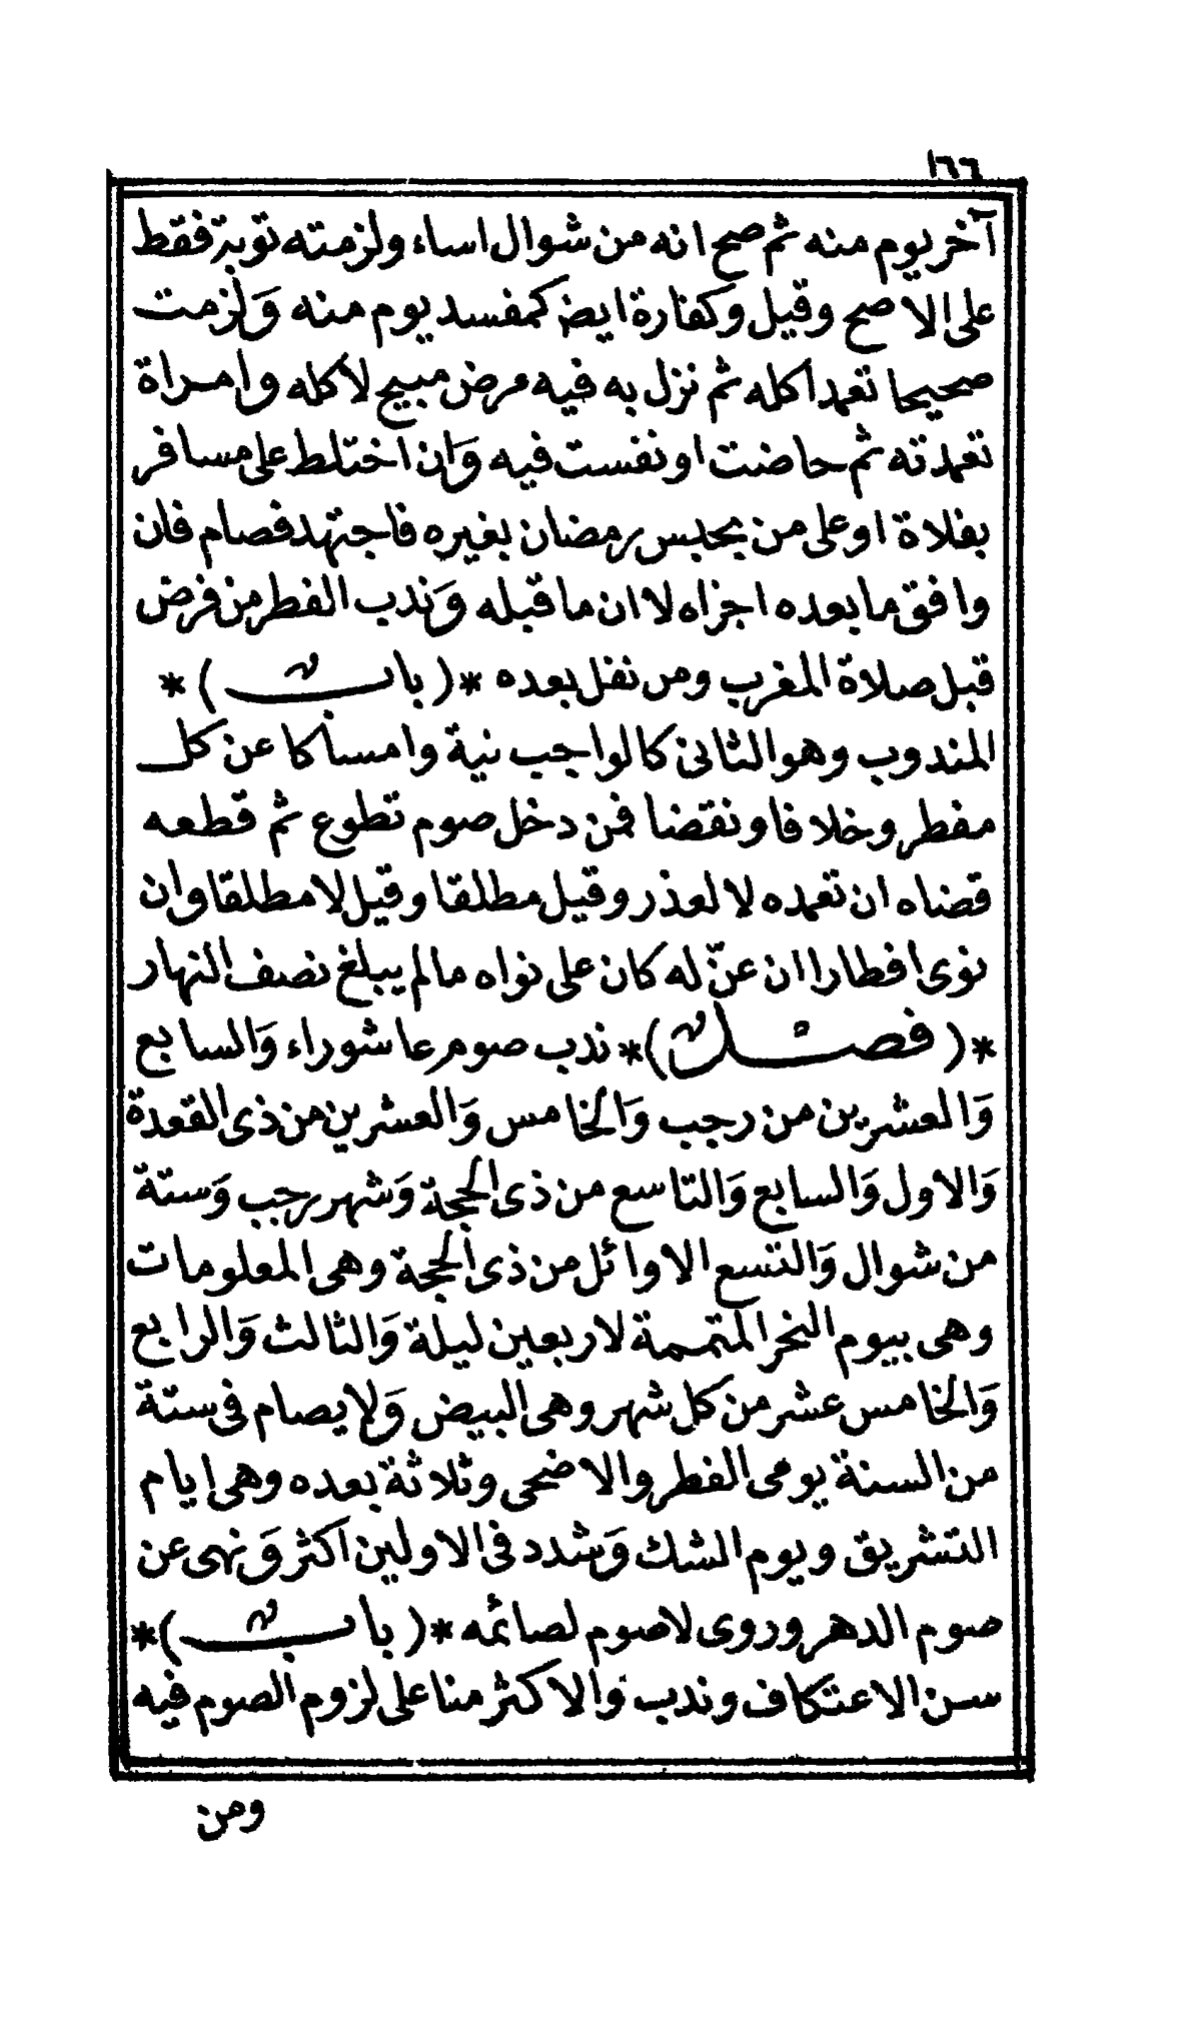 ١٦٦
آخر يوم منه ثم صح انه من شوال اساء ولزمته توبة فقط
على الاصح وقيل وكفارة ايض كمفسد يوم منه وَلزمت
صحيحا تعمد اكله ثم نزل به فيه مرض مبيح لأكله وامراة
تعمدته ثم حاضت او نفست فيه وَان اختلط على مسافر
بفلاة او على من بحبس رمضان بغيره فاجتهد فصام فان
وافق ما بعده اجزاه لا ان ما قبله وَندب الفطر من فرض
قبل صلاة المغرب ومن نفل بعده *( باب )*
المندوب وهو الثانى كالواجب نية وامساكا عن كل
مفطر وخلافا ونقضا فمن دخل صوم تطوع ثم قطعه
قضاه ان تعمده لا لعذر وقيل مطلقا وقيل لا مطلقا وان
نوى افطارا ان عنّ له كان على نواه مالم يبلغ نصف النهار
*( فصل )* ندب صوم عاشوراء وَالسابع
وَالعشرين من رجب وَالخامس وَالعشرين من ذى القعدة
وَالاول وَالسابع وَالتاسع من ذى الحجة وَشهر رجب وَستة
من شوال وَالتسع الاوائل من ذى الحجة وهى المعلومات
وهى بيوم النحر المتممة لاربعين ليلة وَالثالث وَالرابع
وَالخامس عشر من كل شهر وهى البيض وَلا يصام فى ستة
من السنة يومى الفطر والاضحى وثلاثة بعده وهى ايام
التشريق ويوم الشك وَشدد فى الاولين اكثر وَنهى عن
صوم الدهر وروى لا صوم لصائمه *( باب )*
سن الاعتكاف وندب والاكثر منا على لزوم الصوم فيه
ومن